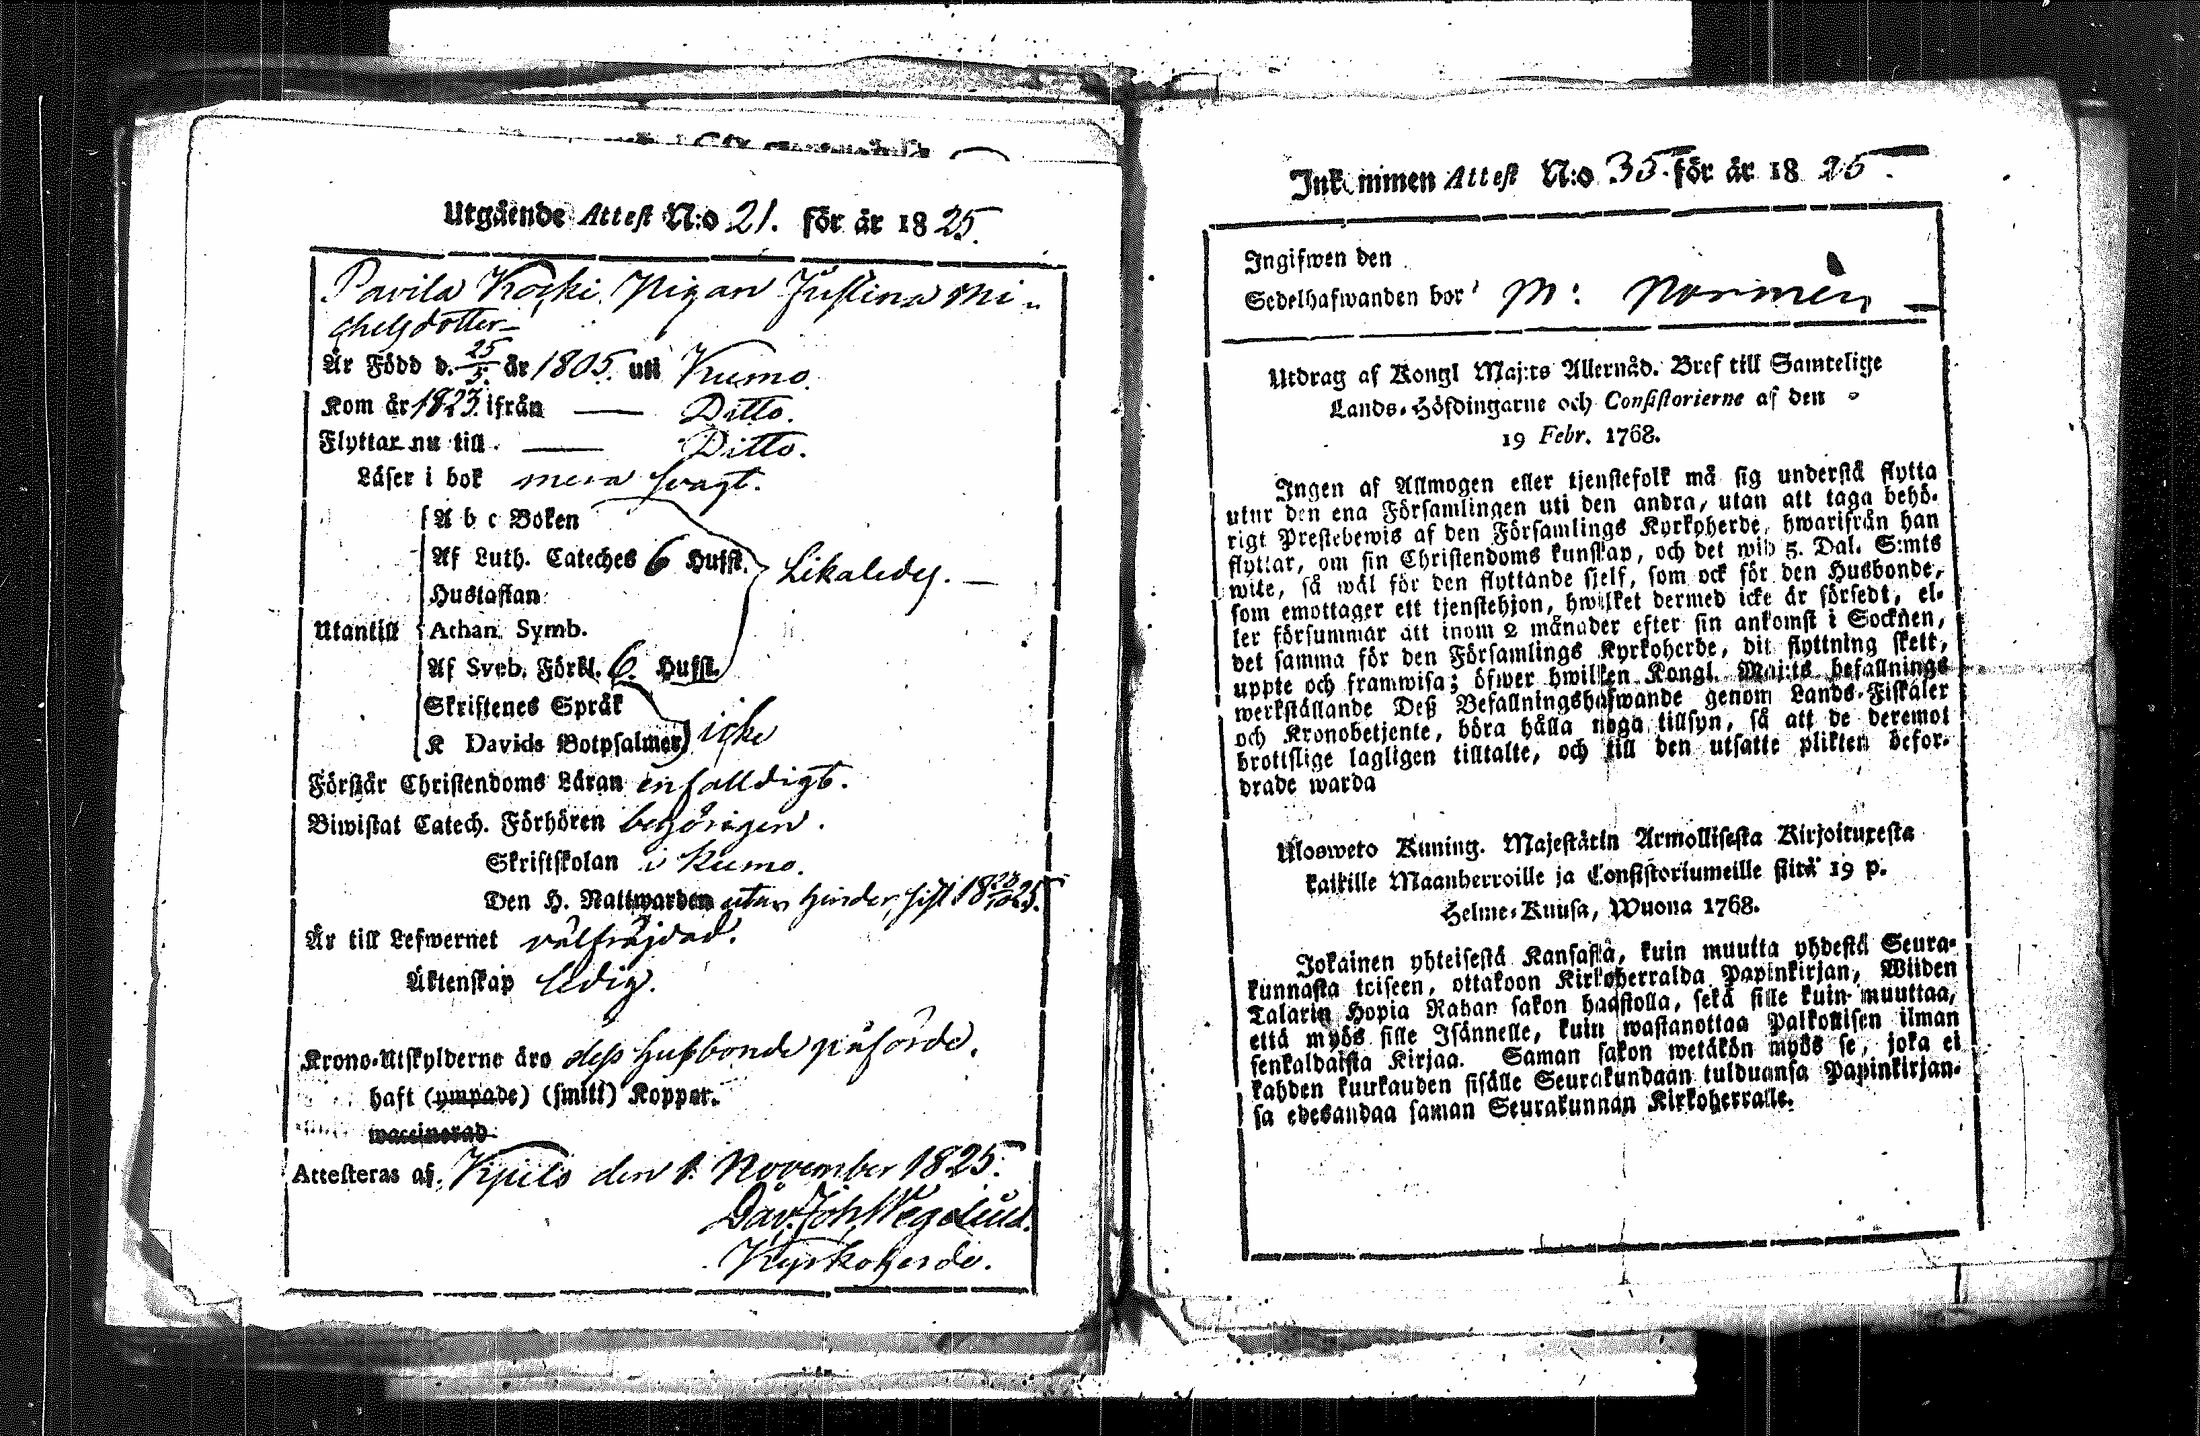 Utgående Attest N:o 21. för år 1825.
Pavila Kocki Pigan Justina Mi-
chelsdotter
Är Född d. 25/3. år 1805. uti Kumo.
Kom år 1823. ifrån — Ditto.
Flyttar nu till. — Ditto.
Läser i bok mera svagt.
A b c Boken
Af Luth. Cateches 6 Hufst. Likaledes. —
Hustaflan
Utantill Athan. Symb.
Af Sveb. Förkl. 6. Hufst.
Skriftenes Språk
K Davids Botpsalmer icke
Förstår Christendoms Läran enfaldigt.
Biwistat Catech. Förhören behörigen.
Skriftskolan i Kumo.
Den H. Nattwarden utan hinder, sist 18 23/10 25.
Är till Lefwernet välfräjdad.
Äktenskap ledig.
Krono-Utskylderne äro dess husbonde påförde.
haft (ympade) (smitt) Koppor.
waccinerad
Attesteras af. Kjulo den 1. November 1825.
Dav. Joh. Wegelius.
Kyrkoherde.
Inkommen Attest N:o 35. för år 1825.
Ingifwen den
Sedelhafwanden bor M: Normén
Utdrag af Kongl Maj:ts Allernåd. Bref till Samtelige
Lands-Höfdingarne och Consistorierne af den
19 Febr. 1768.
Ingen af Allmogen eller tjenstefolk må sig understå flytta
utur den ena Församlingen uti den andra, utan att taga behö-
rigt Prestebewis af den Församlings Kyrkoherde, hwarifrån han
flyttar, om sin Christendoms kunskap, och det wid 5. Dal. S:mts
wite, så wäl för den flyttande sjelf, som ock för den Husbonde,
som emottager ett tjenstehjon, hwilket dermed icke är försedt, el-
ler försummar att inom 2 månader efter sin ankomst i Socknen,
det samma för den Församlings Kyrkoherde, dit flyttning skett,
uppte och framwisa; öfwer hwilken Kongl. Maj:ts befallnings
werkställande Deß Befallningshafwande genom Lands-Fiskaler
och Kronobetjente, böra hålla noga tillsyn, så att de deremot
brottslige lagligen tilltalte, och till den utsatte plikten befor-
drade warda
Ulosweto Kuning. Majestätin Armollisesta Kirjoituxesta
kaikille Maanherroille ja Consistoriumeille siitä 19 p.
Helme-Kuusa, Wuona 1768.
Jokainen yhteisestä Kansasta, kuin muutta yhdestä Seura-
kunnasta toiseen, ottakoon Kirkoherralda Papinkirjan, Wiiden
Talarin Hopia Rahan sakon haastolla, sekä sille kuin muuttaa,
että myös sille Isännelle, kuin wastanottaa Palkollisen ilman
senkaldaista Kirjaa. Saman sakon wetäkön myös se, joka ei
kahden kuukauden sisälle Seurakundaan tulduansa Papinkirjan-
sa edesandaa saman Seurakunnan Kirkoherralle.